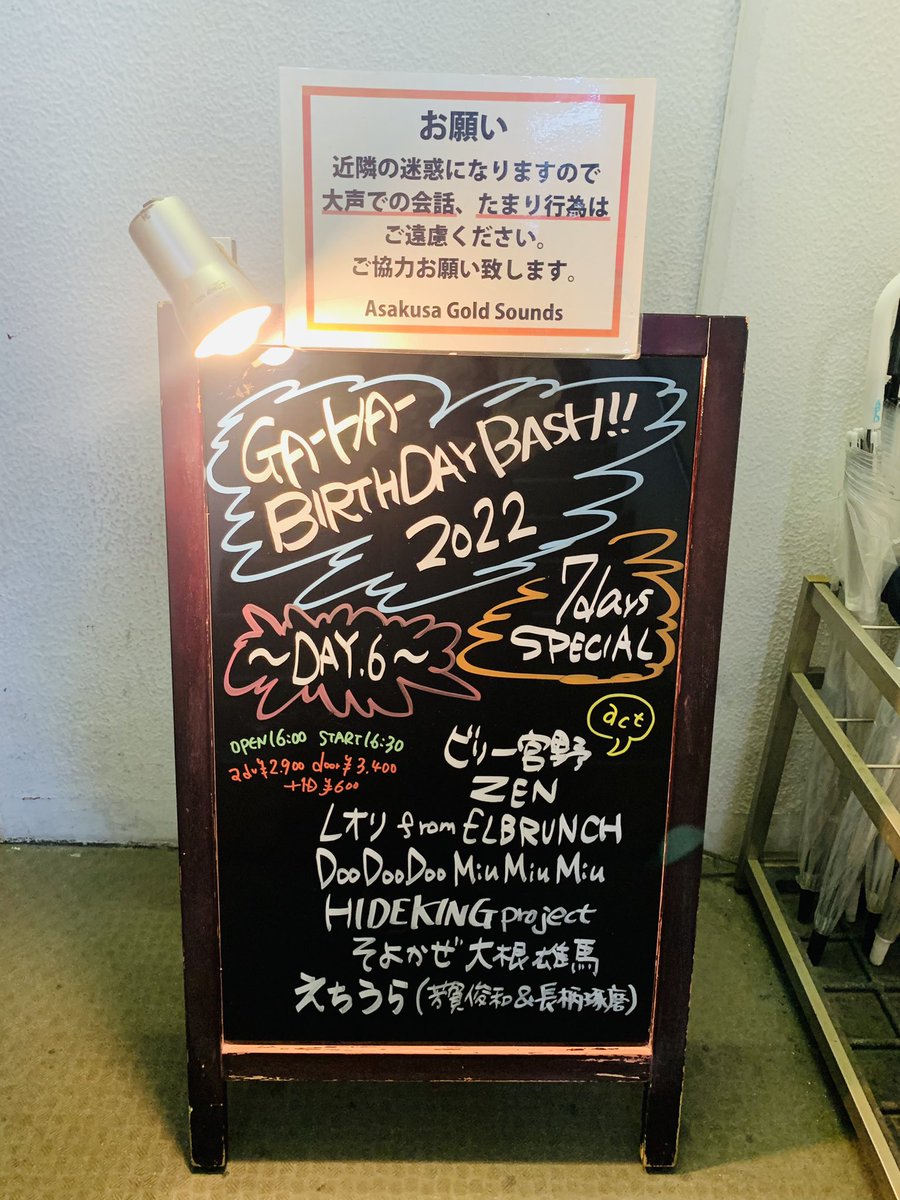 お願い
近隣の迷惑になりますので
大声での会話、たまり行為は
ご遠慮ください。
ご協力お願い致します。
Asakusa Gold Sounds
GA-HA-
BIRTHDAY BASH!!
2022
7days
SPECIAL
～DAY.6～
OPEN16:00 START16:30
adv¥2.900 door¥3.400
+1D ¥600
act
ビリー宮野
ZEN
レオリ from ELBRUNCH
DooDooDoo MiuMiuMiu
HIDEKING project
そよかぜ 大根雄馬
えちうら(芳賀俊和&長柄琢磨)